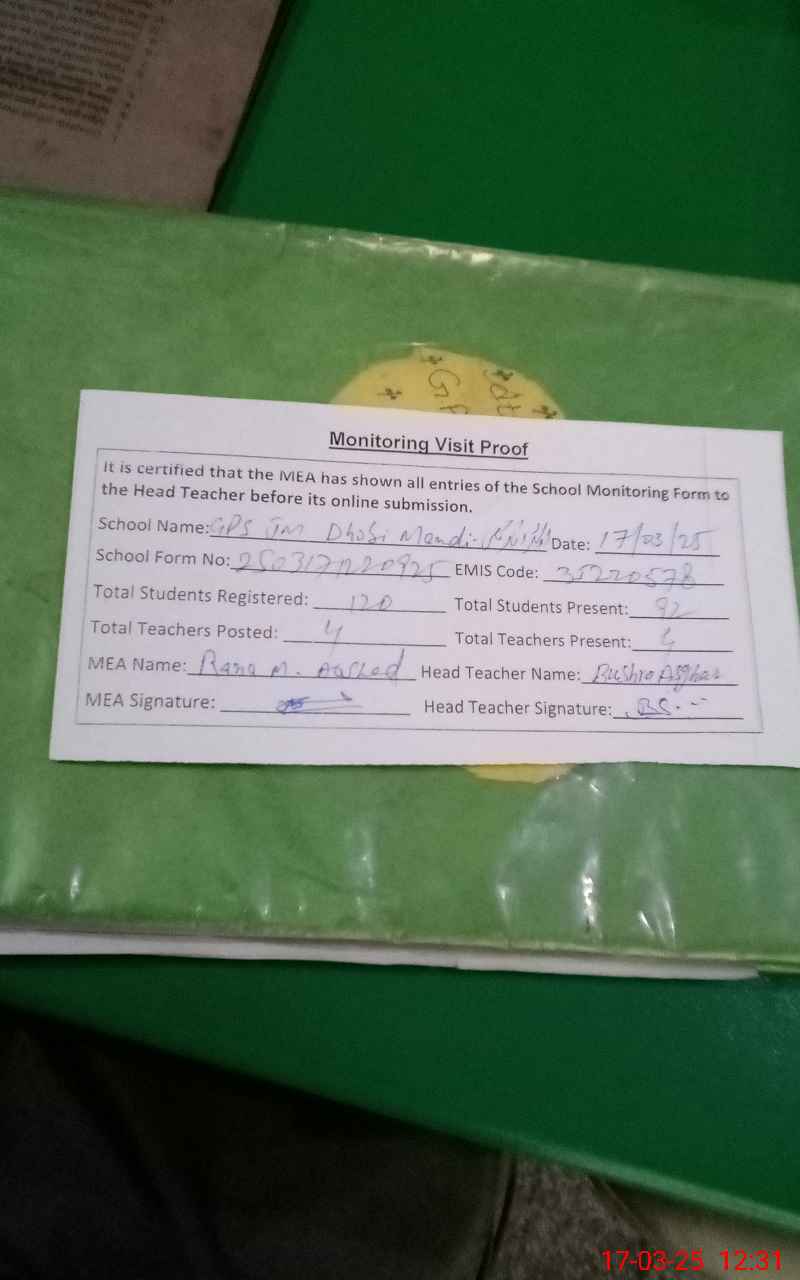 Monitoring Visit Proof
It is certified that the MEA has shown all entries of the School Monitoring Form to
the Head Teacher before its online submission.
School Name: GPS Dhobi Mandi Date: 17/03/25
School Form No: EMIS Code: 35220578
Total Students Registered: 120 Total Students Present: 92
Total Teachers Posted: 4 Total Teachers Present: 4
MEA Name: Rana M. Arshed Head Teacher Name: Bushra Asghar
MEA Signature: Head Teacher Signature:
17-03-25 12:31